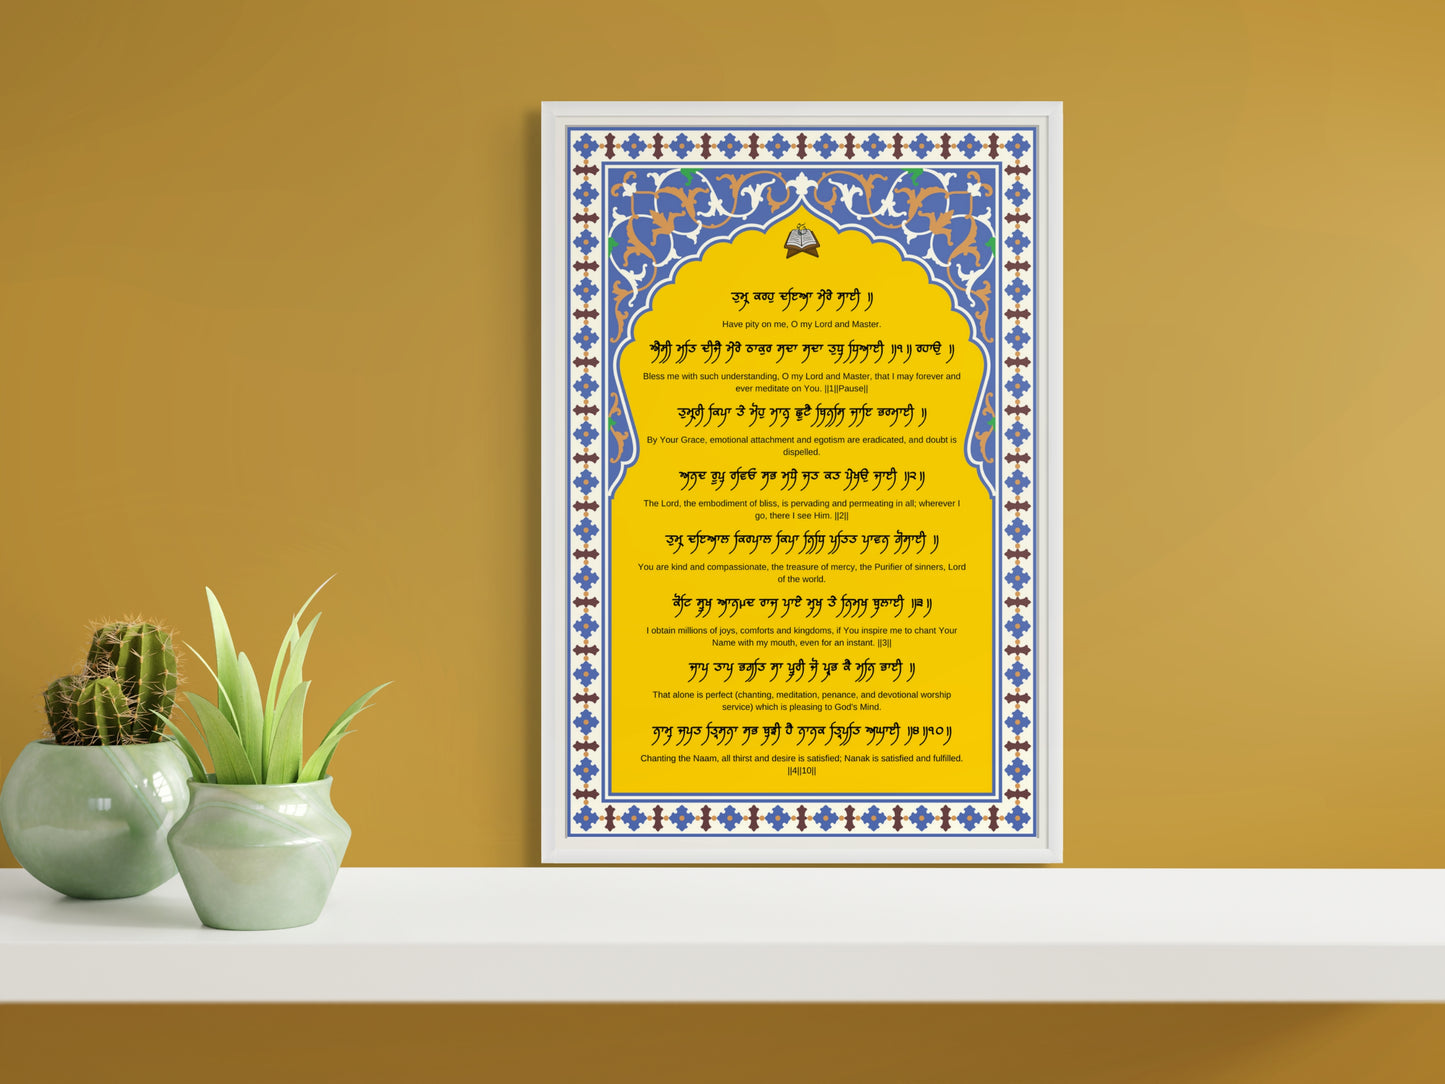 ਤੁਮ੍ਹ ਕਰਹੁ ਦਇਆ ਮੇਰੇ ਸਾਈ ॥
Have pity on me, O my Lord and Master.
ਐਸੀ ਮਤਿ ਦੀਜੈ ਮੇਰੇ ਠਾਕੁਰ ਸਦਾ ਸਦਾ ਤੁਧੁ ਧਿਆਈ ॥੧॥ ਰਹਾਉ ॥
Bless me with such understanding, O my Lord and Master, that I may forever and
ever meditate on You. ||1||Pause||
ਤੁਮ੍ਹਰੀ ਕ੍ਰਿਪਾ ਤੇ ਮੋਹੁ ਮਾਨੁ ਛੂਟੈ ਬਿਨਸਿ ਜਾਇ ਭਰਮਾਈ ॥
By Your Grace, emotional attachment and egotism are eradicated, and doubt is
dispelled.
ਅਨਦ ਰੂਪੁ ਰਵਿਓ ਸਭ ਮਧੇ ਜਤ ਕਤ ਪੇਖਉ ਜਾਈ ॥੨॥
The Lord, the embodiment of bliss, is pervading and permeating in all; wherever I
go, there I see Him. ||2||
ਤੁਮ੍ਹ ਦਇਆਲ ਕਿਰਪਾਲ ਕ੍ਰਿਪਾ ਨਿਧਿ ਪਤਿਤ ਪਾਵਨ ਗੋਸਾਈ ॥
You are kind and compassionate, the treasure of mercy, the Purifier of sinners, Lord
of the world.
ਕੋਟਿ ਸੂਖ ਆਨੰਦ ਰਾਜ ਪਾਏ ਮੁਖ ਤੇ ਨਿਮਖ ਬੁਲਾਈ ॥੩॥
I obtain millions of joys, comforts and kingdoms, if You inspire me to chant Your
Name with my mouth, even for an instant. ||3||
ਜਾਪ ਤਾਪ ਭਗਤਿ ਸਾ ਪੂਰੀ ਜੋ ਪ੍ਰਭ ਕੈ ਮਨਿ ਭਾਈ ॥
That alone is perfect (chanting, meditation, penance, and devotional worship
service) which is pleasing to God's Mind.
ਨਾਮੁ ਜਪਤ ਤ੍ਰਿਸਨਾ ਸਭ ਬੁਝੀ ਹੈ ਨਾਨਕ ਤ੍ਰਿਪਤਿ ਅਘਾਈ ॥੪॥੧੦॥
Chanting the Naam, all thirst and desire is satisfied; Nanak is satisfied and fulfilled.
||4||10||